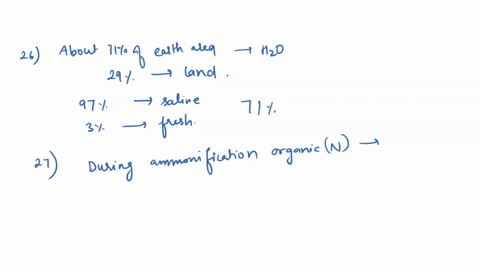 26) About 71% of earth area → H2O
29% → land.
97% → saline 71%
3% → fresh.
27) During ammonification organic (N) →